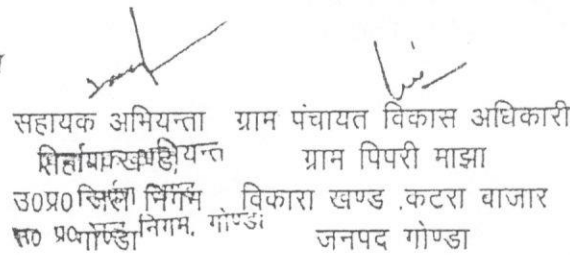 सहायक अभियन्ता ग्राम पंचायत विकास अधिकारी
ग्राम पिपरी माझा
उ0प्र0 निगम विकारा खण्ड .कटरा वाजार
गोण्डा निगम, गोण्डा जनपद गोण्डा